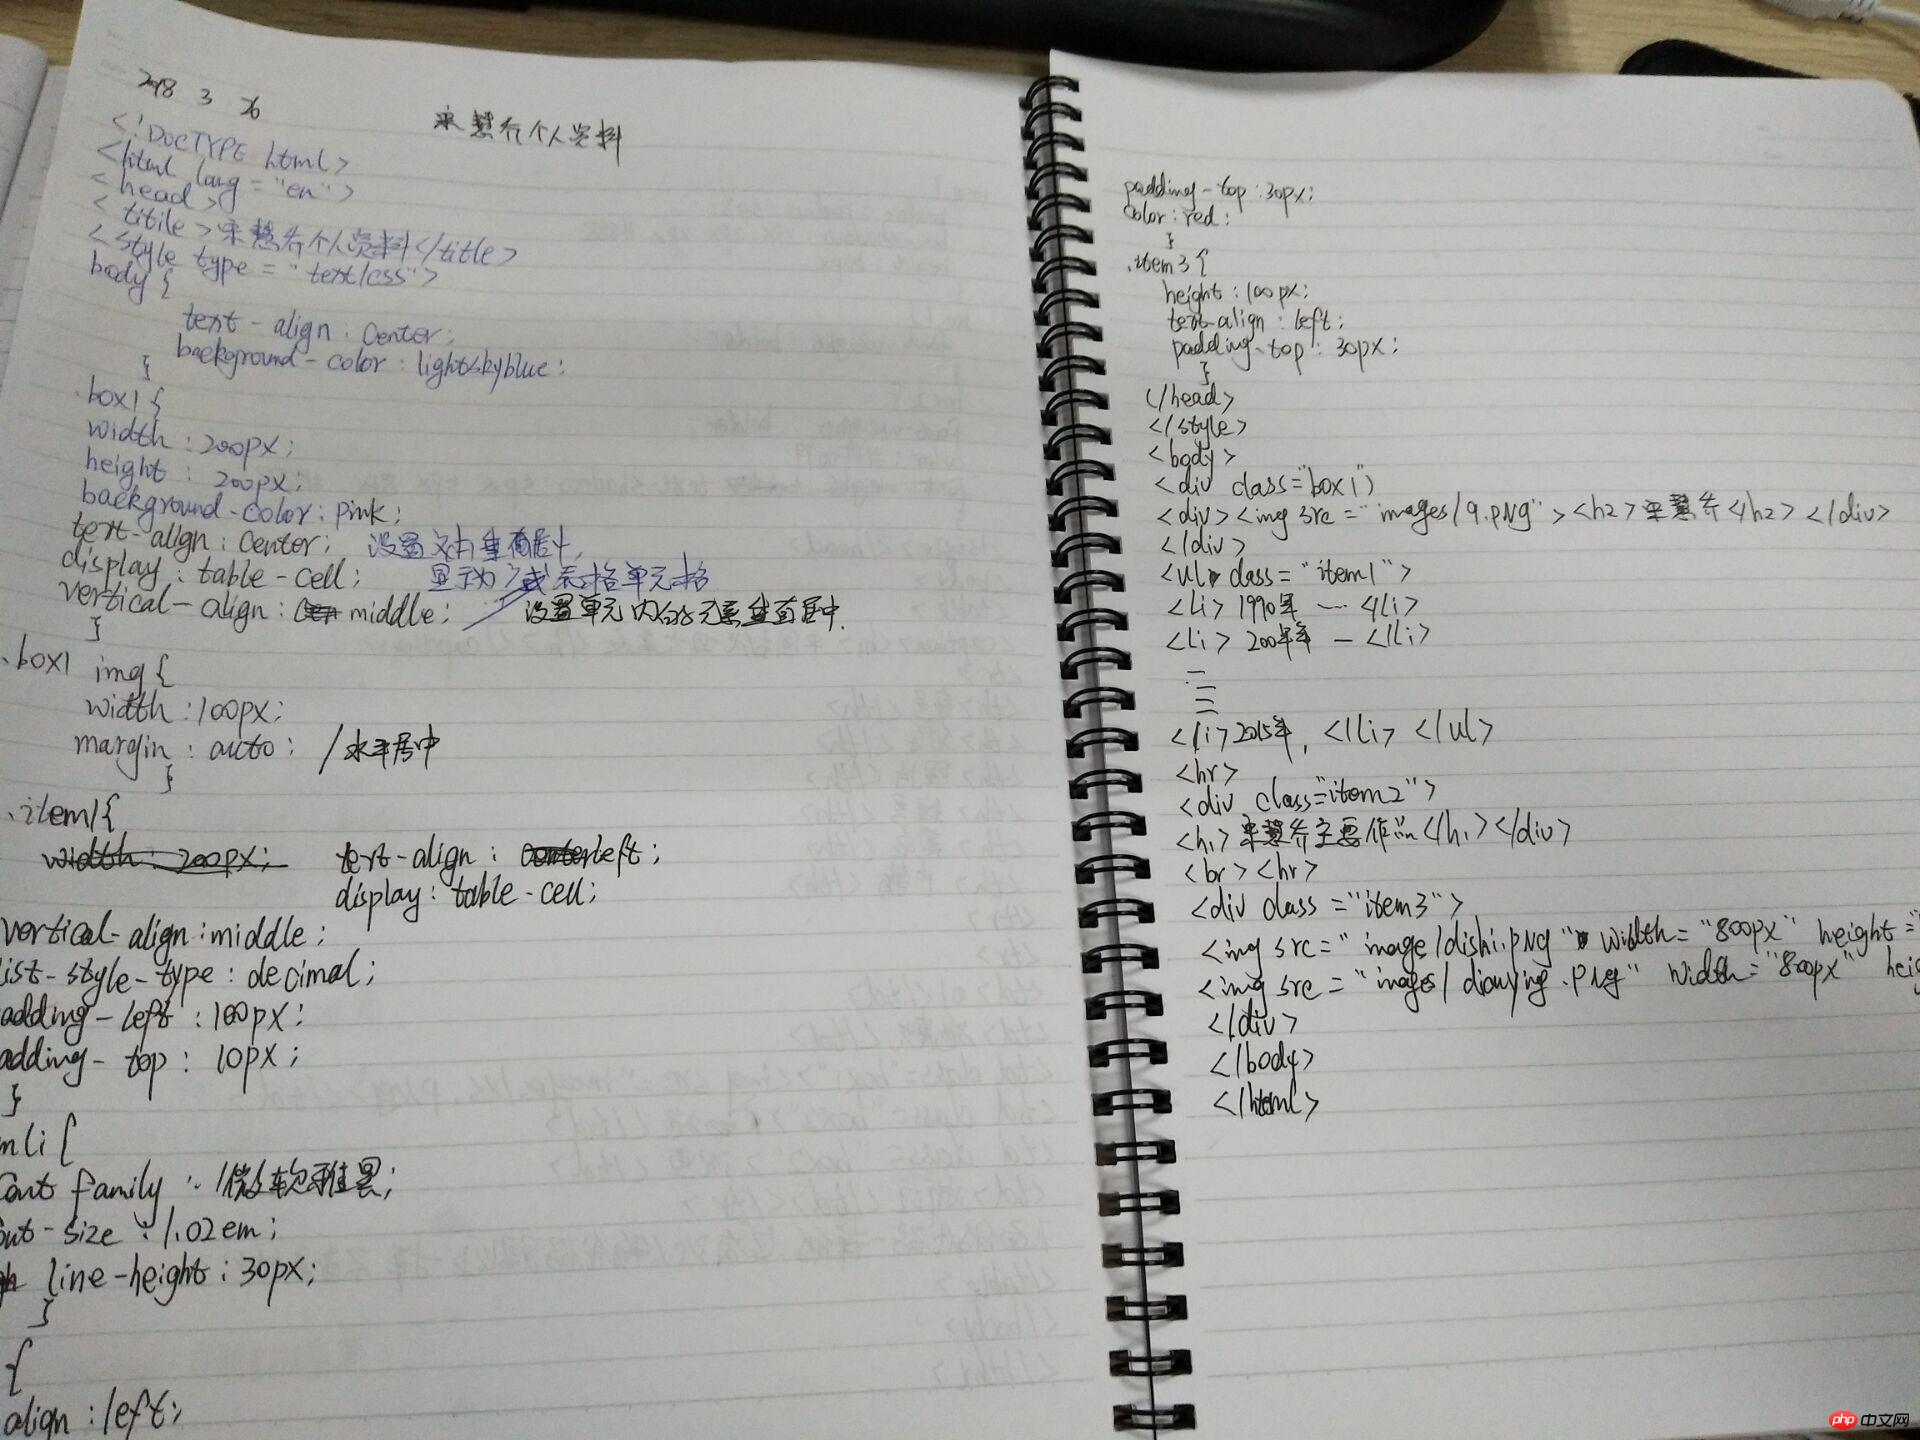 2018 3 26
宋慧乔个人资料
<!DOCTYPE html>
<html lang="en">
<head>
<titile>宋慧乔个人资料</title>
<style type="text/css">
body {
text-align : center;
background-color : lightskyblue;
}
.box1 {
width : 200px;
height : 200px;
background-color : pink;
text-align : center; 设置文本垂直居中,
display : table-cell; 显示为 表格单元格
vertical-align : middle; 设置单元内的元素垂直居中.
}
.box1 img {
width : 100px;
margin : auto; /水平居中
}
.item1{
width : 200px; text-align : left;
display : table-cell;
vertical-align : middle;
ist-style-type : decimal;
adding-left : 100px;
adding-top : 10px;
}
mli {
ont family : 微软雅黑;
nt-size : 1.02em;
line-height : 30px;
}
{
align : left;
padding-top : 30px;
color : red;
}
.item3{
height : 100px;
text-align : left;
padding-top : 30px;
}
</head>
</style>
<body>
<div class="box1")
<div><img src="images/9.png"><h2>宋慧乔</h2></div>
</div>
<ul class="item1">
<li>1990年 --- </li>
<li> 200年 — </li>
</li>2015年, </li> </ul>
<hr>
<div class="item2">
<h1>宋慧乔主要作品</h1></div>
<br><hr>
<div class="item3">
<img src="image/dishi.png" width="800px" height="
<img src="images/dianying.png" width="800px" heig
</div>
</body>
</html>
php 中文网